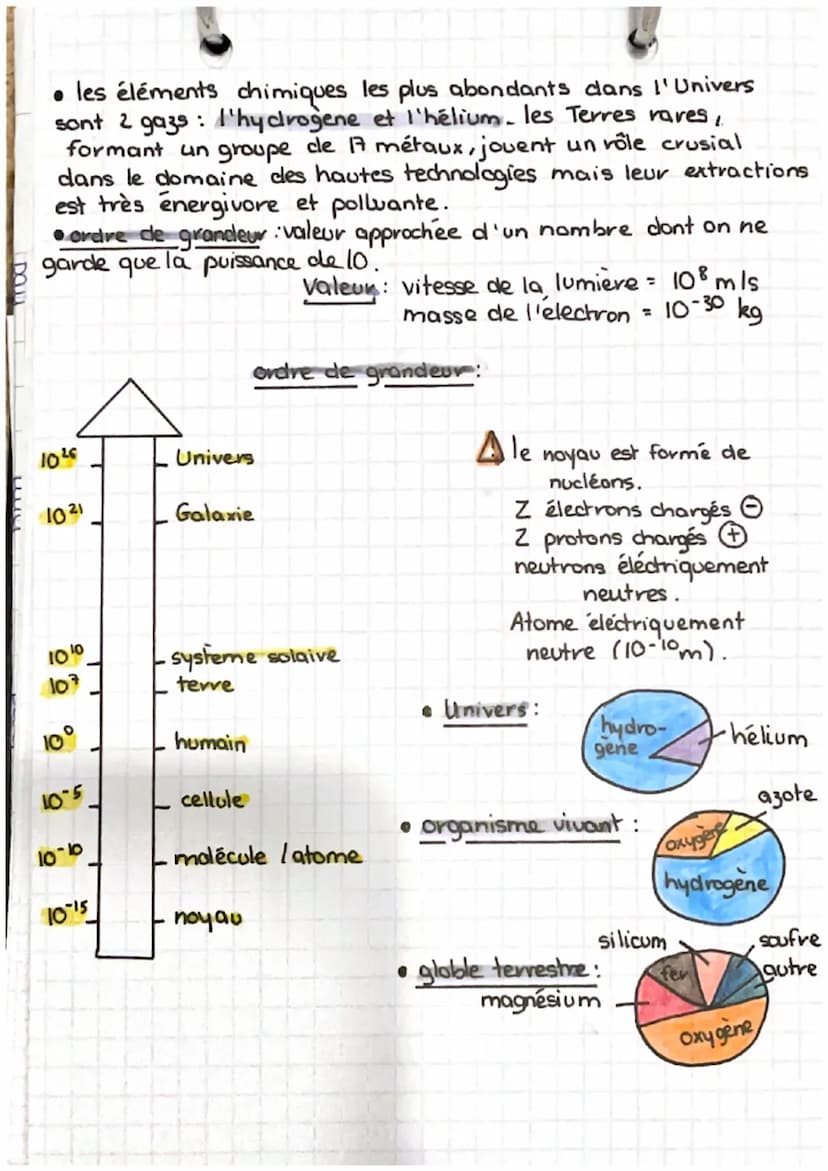 • les éléments chimiques les plus abondants dans l'Univers
sont 2 gazs : l'hydrogène et l'hélium. les Terres rares,
formant un groupe de 17 métaux, jouent un rôle crusial
dans le domaine des hautes technologies mais leur extractions
est très énergivore et polluante.
• ordre de grandeur : valeur approchée d'un nombre dont on ne
garde que la puissance de 10.
Valeur : vitesse de la lumière = 10⁸ m/s
masse de l'électron = 10⁻³⁰ kg
ordre de grandeur :
10²⁶ Univers
10²¹ Galaxie
10¹⁰ système solaire
10⁷ terre
10⁰ humain
10⁻⁵ cellule
10⁻¹⁰ molécule / atome
10⁻¹⁵ noyau
le noyau est formé de
nucléons.
Z électrons chargés ⊖
Z protons chargés ⊕
neutrons éléctriquement
neutres.
Atome éléctriquement
neutre (10⁻¹⁰m).
• Univers :
hydro-
gène
hélium
• organisme vivant :
azote
oxygène
hydrogène
• globle terrestre :
silicum
soufre
fer
autre
magnésium
oxygène